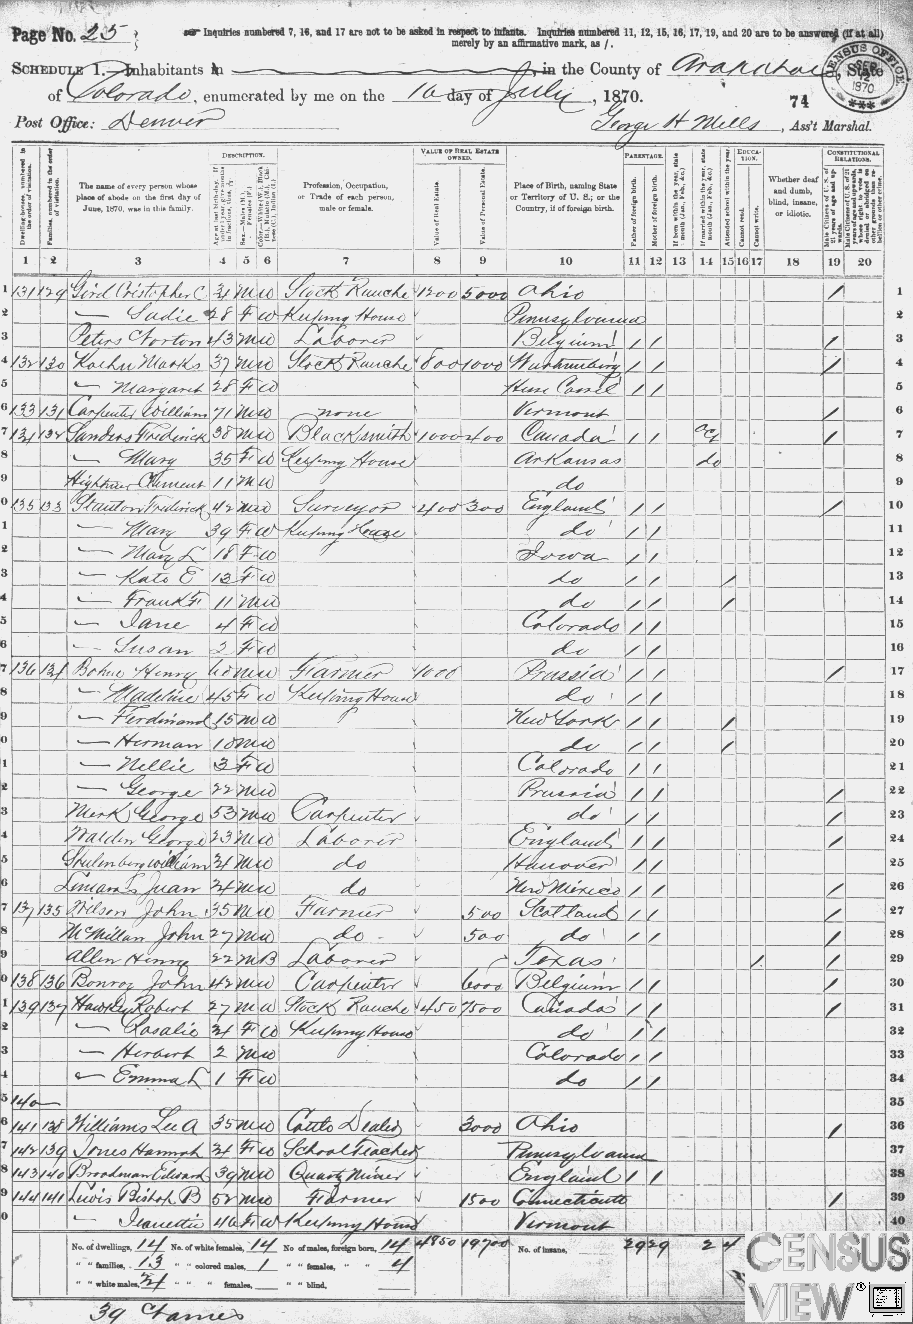 Page No. 25
Inquiries numbered 7, 16, and 17 are not to be asked in respect to infants. Inquiries numbered 11, 12, 15, 16, 17, 19, and 20 are to be answered (if at all) merely by an affirmative mark, as /.
SCHEDULE 1.—Inhabitants in , in the County of Arapahoe State
of Colorado, enumerated by me on the 16 day of July, 1870.
74
CENSUS OFFICE SEP 12 1870
Post Office: Denver
George H Mills, Ass't Marshal.
Dwelling-houses, numbered in the order of visitation.
Families, numbered in the order of visitation.
The name of every person whose place of abode on the first day of June, 1870, was in this family.
DESCRIPTION.
Profession, Occupation, or Trade of each person, male or female.
VALUE OF REAL ESTATE OWNED.
Value of Real Estate
Value of Personal Estate.
Place of Birth, naming State or Territory of U. S.; or the Country, if of foreign birth.
PARENTAGE.
Father of foreign birth.
Mother of foreign birth.
EDUCATION.
Attended school within the year
Cannot read.
Cannot write.
Whether deaf and dumb, blind, insane, or idiotic.
CONSTITUTIONAL RELATIONS.
1 2 3 4 5 6 7 8 9 10 11 12 13 14 15 16 17 18 19 20
1 131 129 Gird Cristopher C 34 M W Stock Ranche 1200 5000 Ohio / 1
2 — Sadie 28 F W Keeping House Pennsylvania 2
3 Peters Norton 43 M W Laborer Belgium / / / 3
4 132 130 Marks 37 M W Stock Ranche 800 1000 / / / 4
5 — Margaret 28 F W Hesse Cassel / / 5
6 133 131 Carpenter William 71 M W none Vermont / 6
7 134 132 Sanders Frederick 38 M W Blacksmith 1000 400 Canada / / Oct / 7
8 — Mary 35 F W Keeping House Arkansas do 8
9 Clement 11 M W do 9
0 135 133 Stanton Frederick 42 M W Surveyor 400 300 England / / / 10
1 — Mary 39 F W Keeping House do / / 11
2 — Mary L 18 F W Iowa / / 12
3 — Kate E 13 F W do / / / 13
4 — Frank F 11 M W do / / / 14
5 — Jane 4 F W Colorado / / 15
6 — Susan 2 F W do / / 16
7 136 134 Henry M W Farmer 1000 Prussia / / / 17
8 — Madeline 45 F W Keeping House do / / 18
9 — Ferdinand 15 M W New York / / / 19
0 — Herman 10 M W do / / / 20
1 — Nellie 3 F W Colorado / / 21
2 — George 22 M W Prussia / / / 22
3 Merk George 53 M W Carpenter do / / / 23
4 Walden George 23 M W Laborer England / / / 24
5 William 24 M W do Hanover / / 25
6 Juan 24 M W do New Mexico / / / 26
7 137 135 Wilson John 35 M W Farmer 500 Scotland / / / 27
8 McMillan John 27 M W do 500 do / / / 28
9 Allen Henry 22 M B Laborer Texas / / 29
0 138 136 John 42 M W Carpenter 6000 Belgium / / / 30
1 139 137 Hawkey Robert 27 M W Stock Ranche 450 7500 Canada / / / 31
2 — Rosalie 24 F W Keeping House do / / 32
3 — Herbert 2 M W Colorado / / 33
4 — Emma L 1 F W do / / 34
5 140 — 35
6 141 138 Williams Lee A 35 M W Cattle Dealer 3000 Ohio / 36
7 142 139 Jones Hannah 24 F W School Teacher Pennsylvania 37
8 143 140 Broadman Edward 39 M W Quartz Miner England / / 38
9 144 141 Lewis Bishop B 52 M W Farmer 1500 Connecticut / 39
0 — Jeanettie 46 F W Keeping House Vermont 40
No. of dwellings, 14 No. of white females, 14 No. of males, foreign born, 14 4850 19700 No. of insane, 29 29 2 4
" " families, 13 " " colored males, 1 " " females, " " 4
" " white males, 24 " " " females, " " blind,
39 Names
CENSUS VIEW